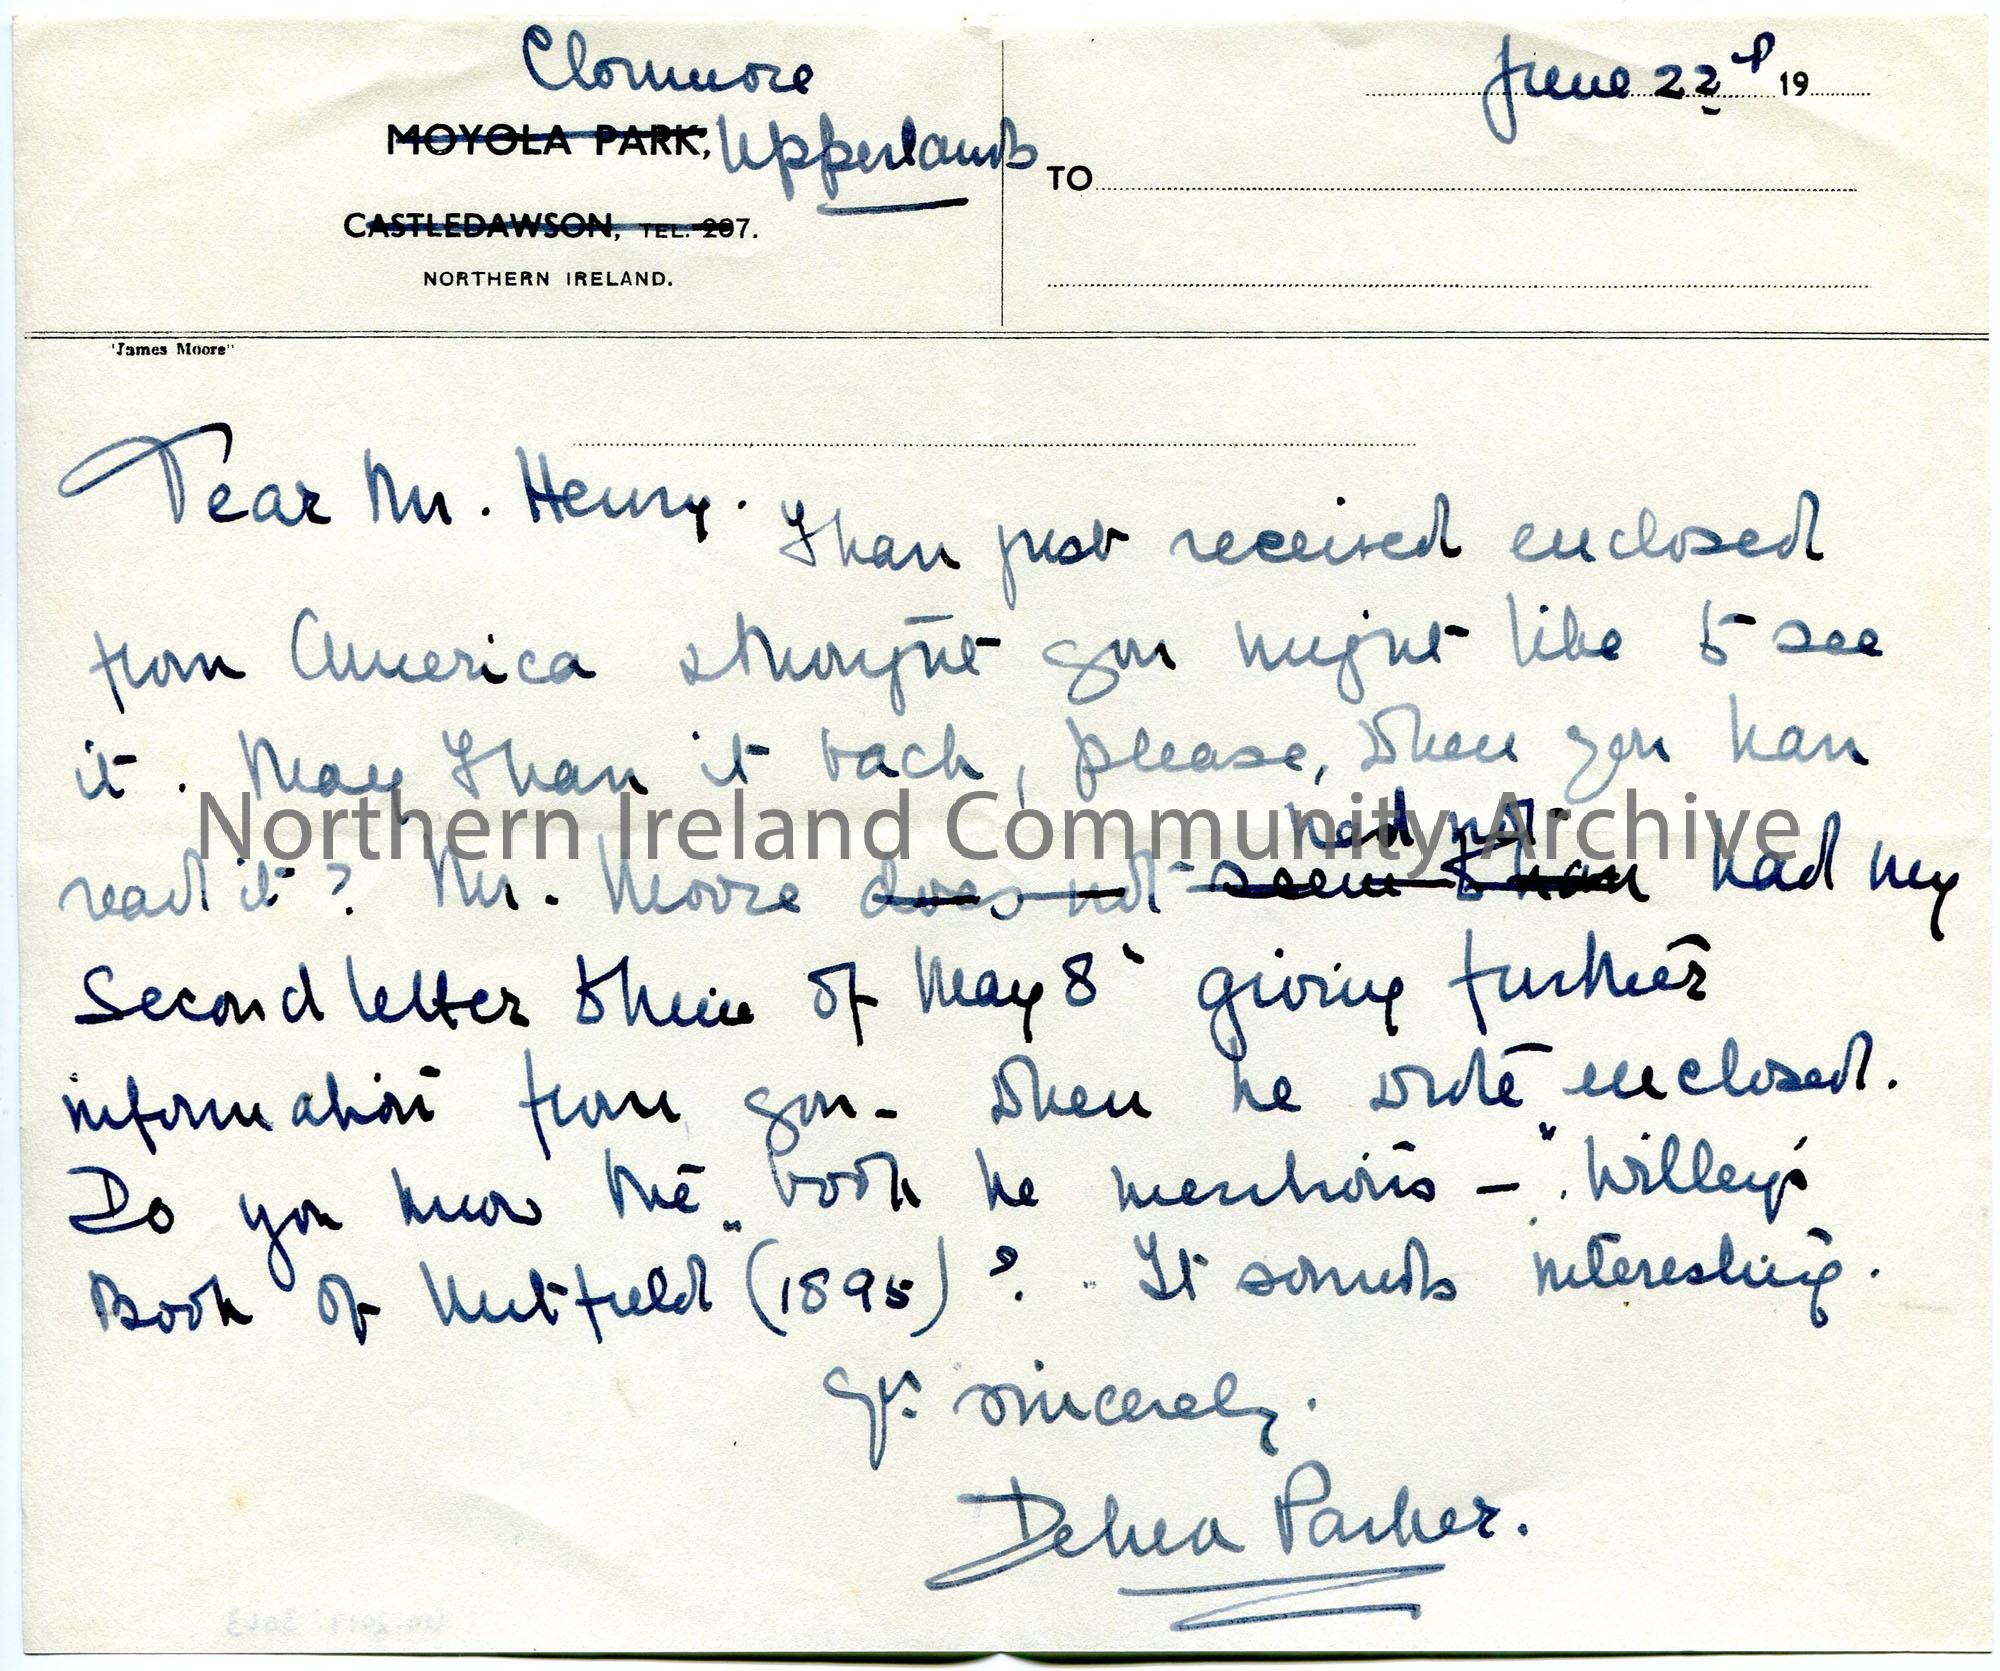 Clonmore
MOYOLA PARK, Upperlands
CASTLEDAWSON, TEL. 207.
NORTHERN IRELAND.
June 22nd 19
TO
'James Moore"
Dear Mr. Henry. I have just received enclosed
from America & thought you might like to see
it. May I have it back, please, when you have
read it? Mr. Moore does not seem to have had not had my
Second letter of May 8 giving further
information from you - when he wrote enclosed.
Do you know the book he mentions - "Willey's
Book of Nutfield" (1895)? It sounds interesting.
Yrs. sincerely.
Dehra Parker.
Northern Ireland Community Archive